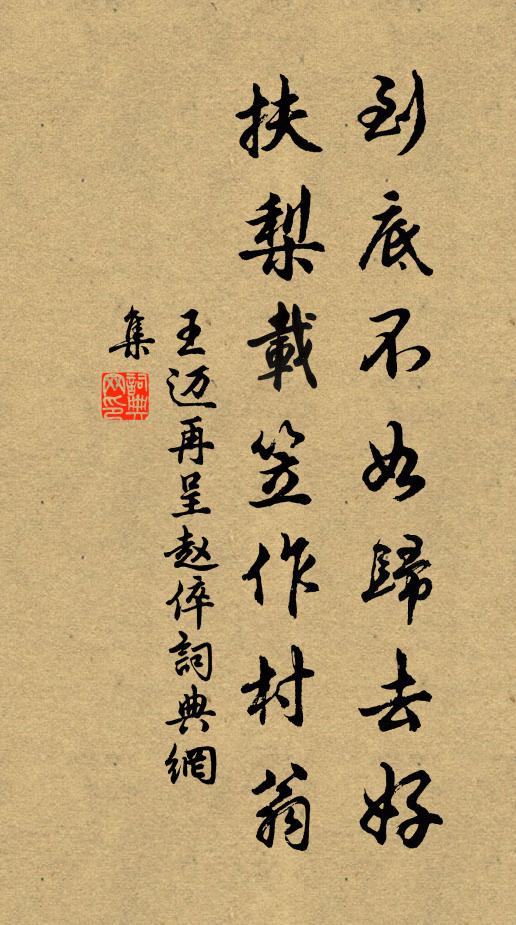 到底不如歸去好
扶梨載笠作村翁
王迈再呈赵倅詞典網
集
詞典網印